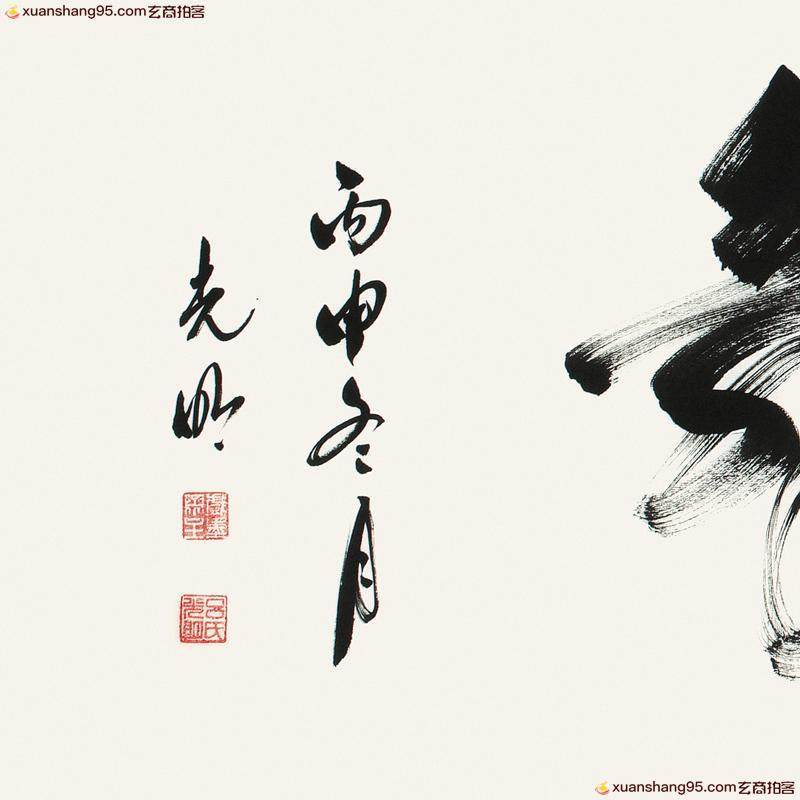 xuanshang95.com玄商拍客
丙申冬月
光明
吕氏
光明
xuanshang95.com玄商拍客